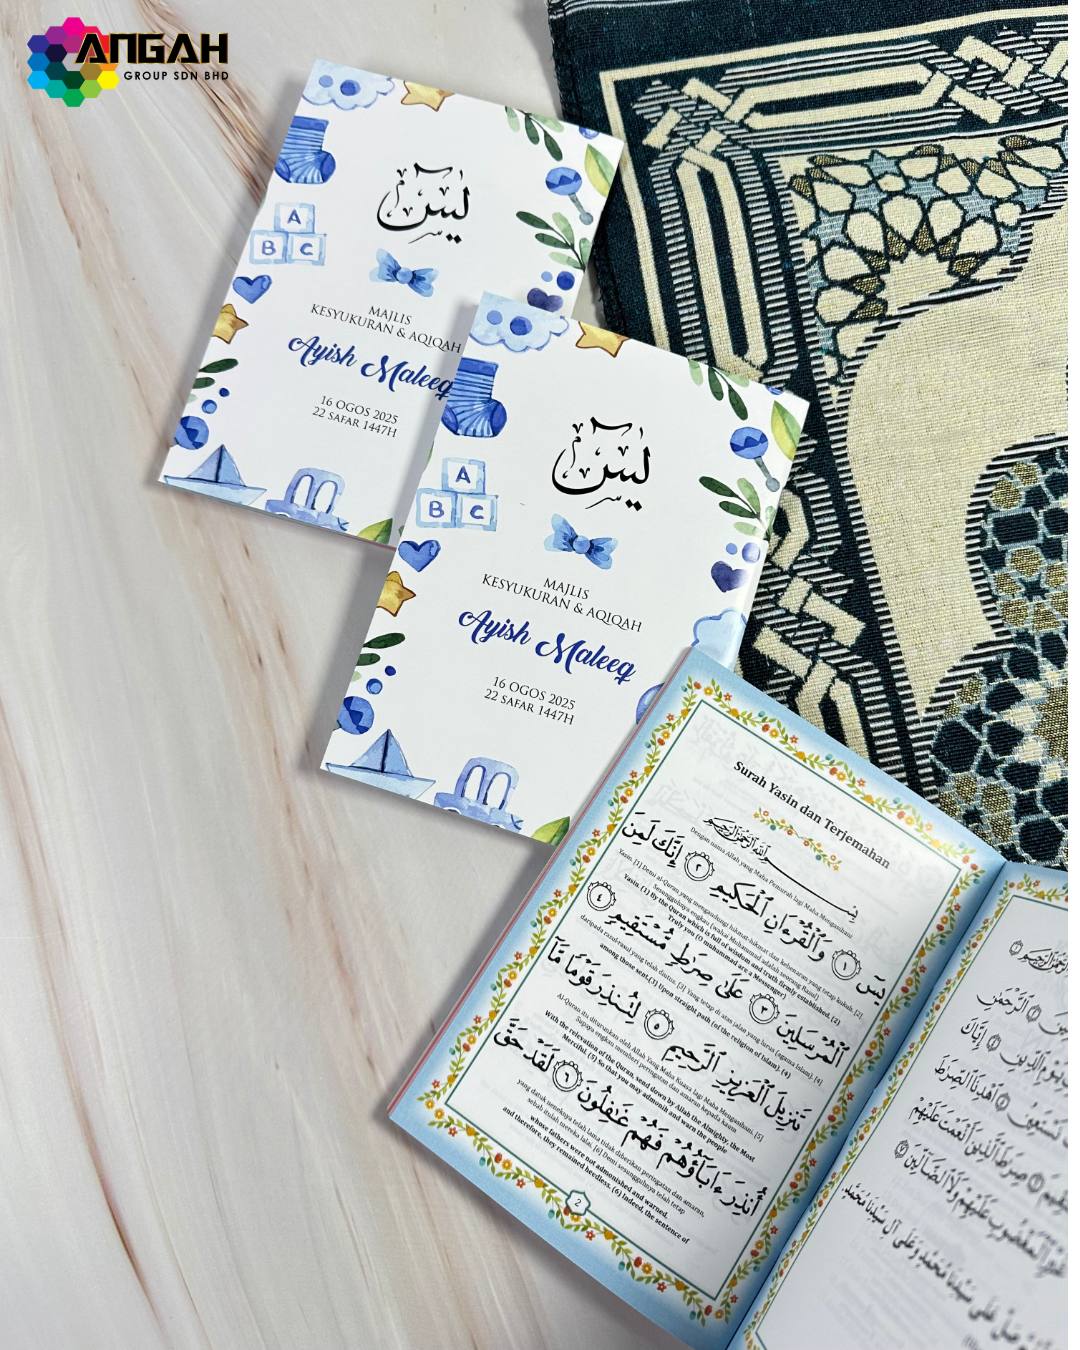 ANGAH
GROUP SDN BHD
A
B C
يٰسٓ
MAJLIS
KESYUKURAN & AQIQAH
Ayish Maleeq
16 OGOS 2025
22 SAFAR 1447H
A
B C
يٰسٓ
MAJLIS
KESYUKURAN & AQIQAH
Ayish Maleeq
16 OGOS 2025
22 SAFAR 1447H
Surah Yasin dan Terjemahan
بِسْمِ اللَّهِ الرَّحْمَٰنِ الرَّحِيمِ
Dengan nama Allah yang Maha Pemurah lagi Maha Mengasihani
يسٓ ١ وَالْقُرْءَانِ الْحَكِيمِ ٢ إِنَّكَ لَمِنَ
Yasin. [1] Demi al-Quran yang mengandungi hikmat-hikmat dan kebenaran yang tetap kukuh. [2].
Sesungguhnya engkau (wahai Muhammad adalah seorang Rasul)
Yasin. (1) By the Quran which is full of wisdom and truth firmly established. (2)
Truly you (O muhammad are a Messenger)
الْمُرْسَلِينَ ٣ عَلَىٰ صِرَاطٍ مُّسْتَقِيمٍ ٤
daripada rasul-rasul yang telah diutus. [3] Yang tetap di atas jalan yang lurus (agama Islam). [4]
among those sent.(3) Upon straight path (of the religion of Islam). (4)
تَنزِيلَ الْعَزِيزِ الرَّحِيمِ ٥ لِتُنذِرَ قَوْمًا مَّآ
Al-Quran itu diturunkan oleh Allah Yang Maha Kuasa lagi Maha Mengasihani. [5]
Supaya engkau memberi peringatan dan amaran kepada kaum
With the relevation of the Quran, send down by Allah the Almighty, the Most
Merciful. (5) So that you may admonish and warn the people
أُنذِرَ ءَابَآؤُهُمْ فَهُمْ غَٰفِلُونَ ٦ لَقَدْ حَقَّ
yang datuk neneknya telah lama tidak diberikan peringatan dan amaran,
sebab itulah mereka lalai. [6] Demi sesungguhnya telah tetap
whose fathers were not admonished and warned.
and therefore, they remained heedless. (6) Indeed, the sentence of
2
الرَّحْمَٰنِ
يَوْمِ الدِّينِ ٤ إِيَّاكَ
نَسْتَعِينُ ٥ اهْدِنَا الصِّرَاطَ
صِرَاطَ الَّذِينَ أَنْعَمْتَ عَلَيْهِمْ
غَيْرِ الْمَغْضُوبِ عَلَيْهِمْ وَلَا الضَّآلِّينَ ٧
صَلِّ عَلَى سَيِّدِنَا مُحَمَّدٍ وَعَلَى آلِ سَيِّدِنَا مُحَمَّدٍ